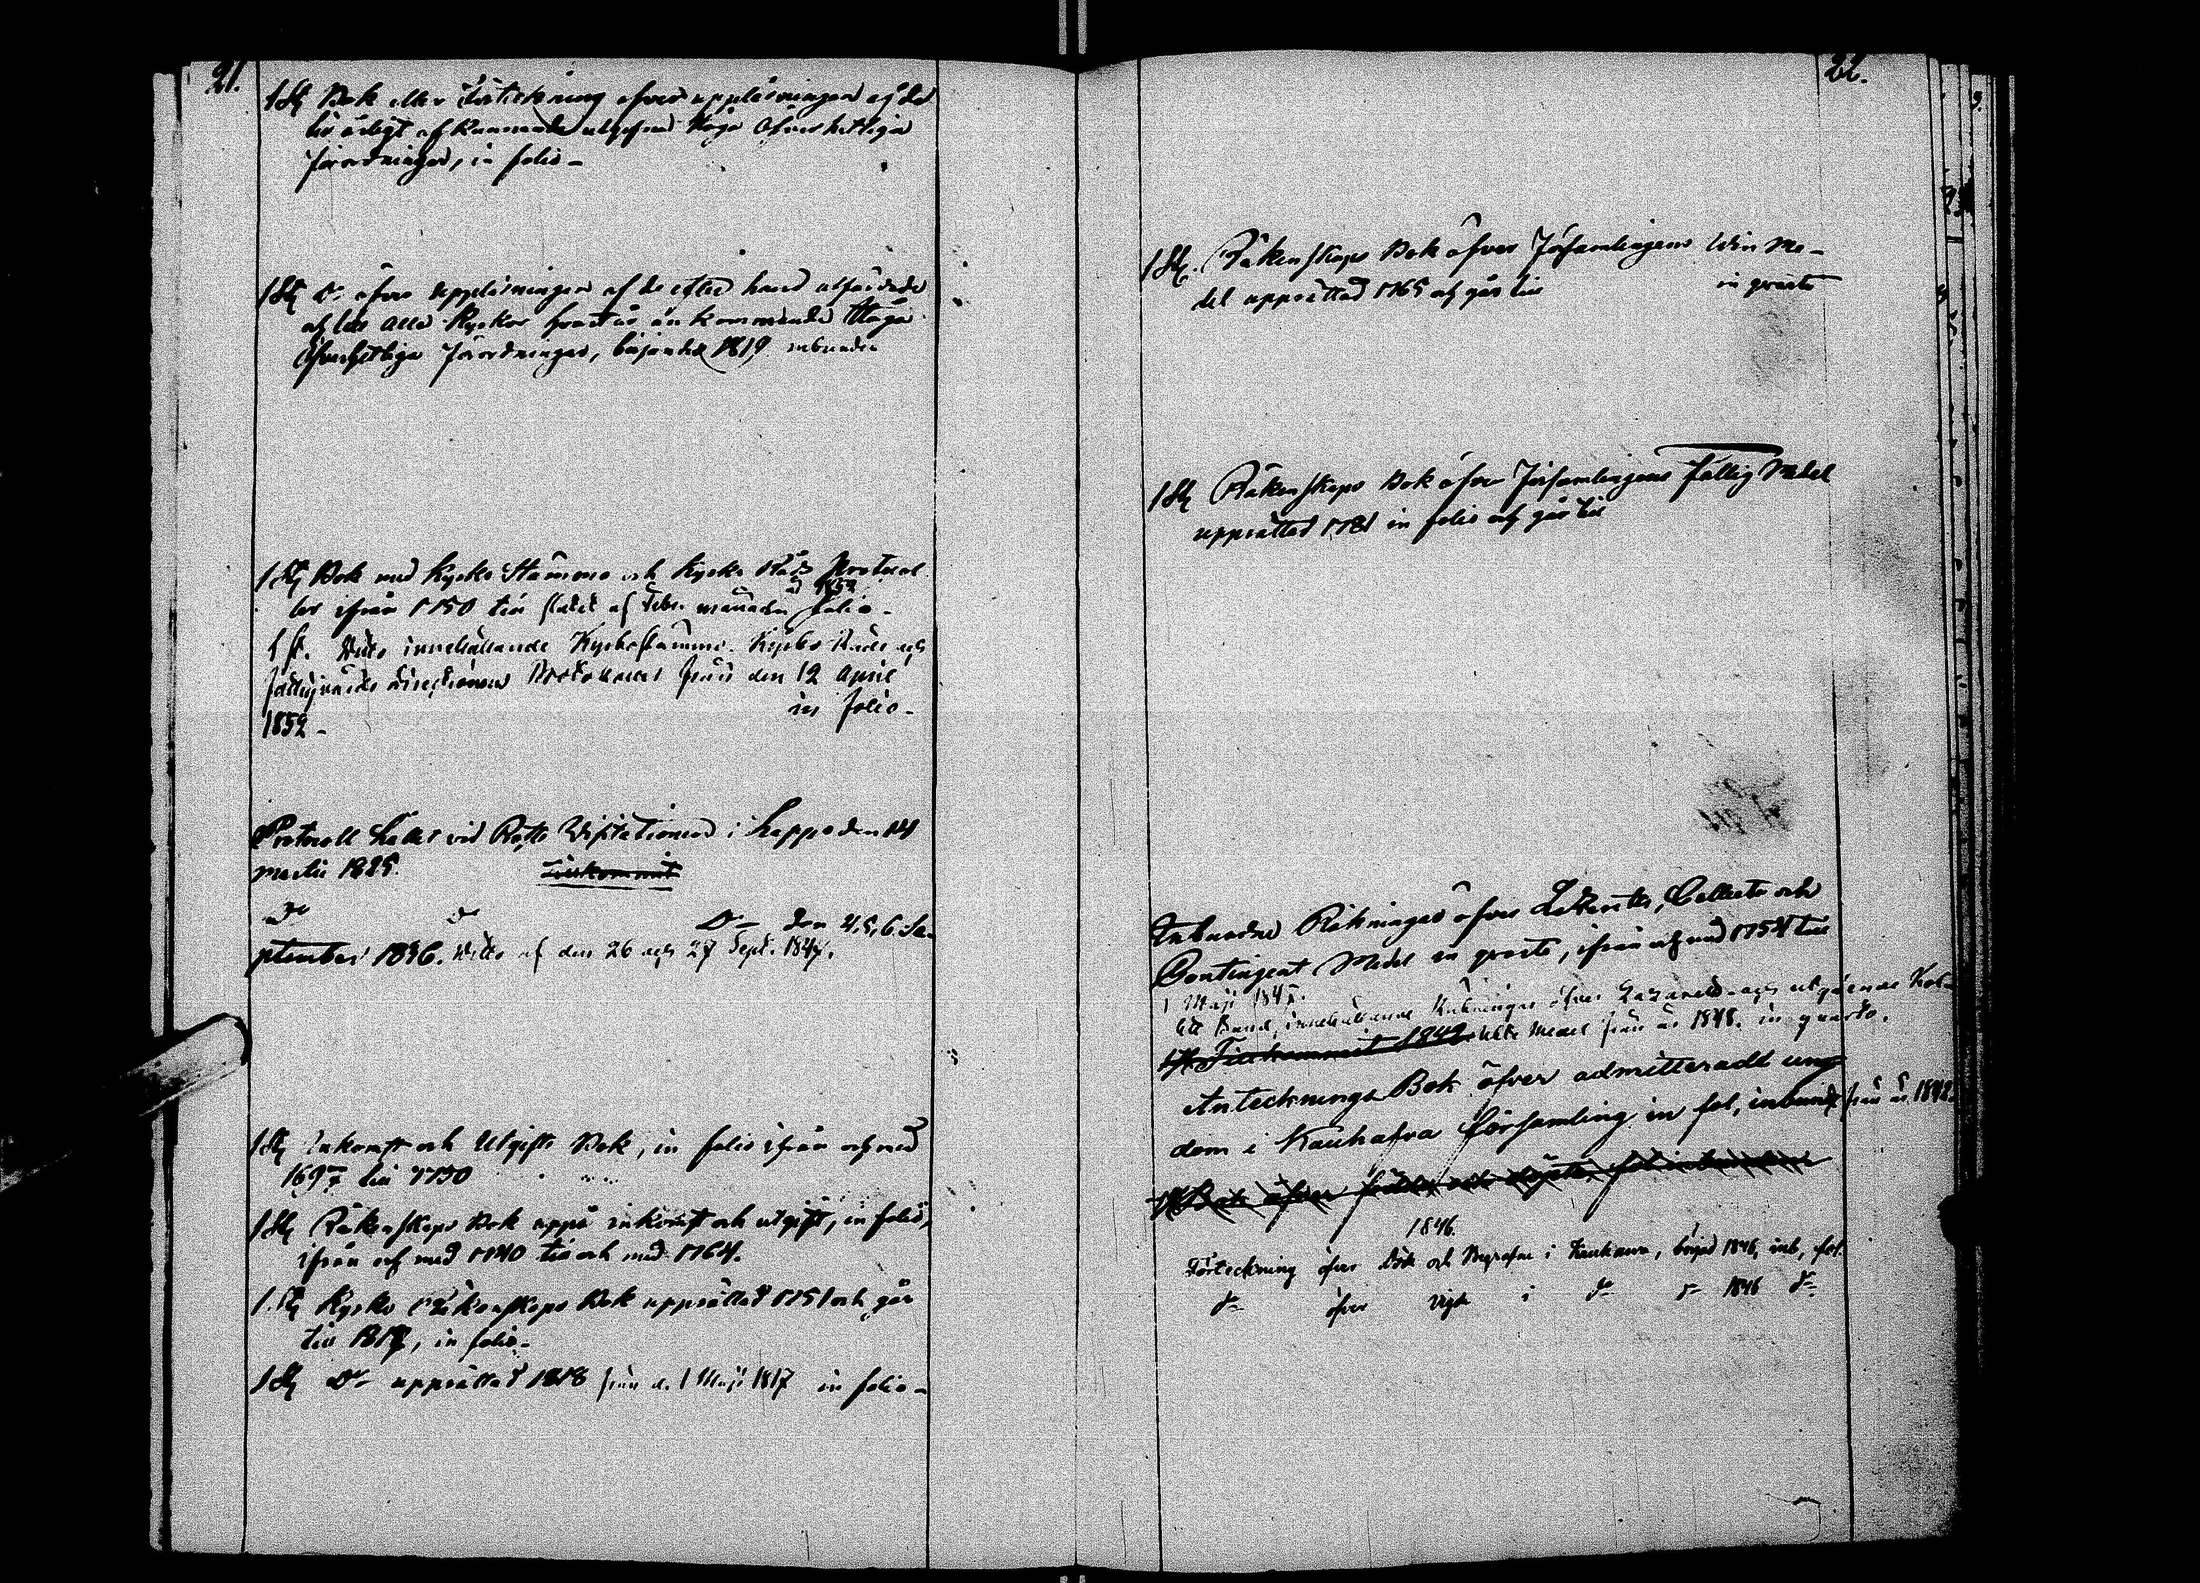 21.
1 St Bok eller Förteckning öfver uppläsningen af de
hit årligt af Kunnande utgifne Höga Öfverhetliga
Förordningar, in folio -
1 St Do öfver uppläsningen af de efter hand utfärdade
och till alla Kyrkor hvart år ankommande Höga
Öfverhetliga Förordningar, börjande 1819 inbunden
1 St Bok med Kyrko Stämmo och Kyrko Råds Protocol
ler ifrån 1750 till slutet af Febr. månaden folio -
1 St. Ditto innehållande Kyrkostämmo, Kyrko Råds och
Direktionens Protokoller från den 12 April
1852 - in folio -
Protocoll hållet vid Visitationen i Lappo den 14
Martii 1825. Tillkommit
Do Do Do den 4, 5, 6 Se-
ptember 1836. Ditto af den 26 och 27 Sept. 1847.
1 St Inkomst och Utgifts Bok, in folio ifrån och med
1697 till 1730
1 St Räkenskaps Bok uppå inkomst och utgift, in folio,
ifrån och med 1740 till och med 1764.
1 St Kyrko Räkenskaps Bok upprättad 1751 och går
till 1817, in folio -
1 St Do upprättad 1818 från d. 1 Maji 1817 in folio -
22.
1 St. Räkenskaps Bok öfver Församlingens Win Me-
del upprättad 1765 och går till in qvarto
1 St Räkenskaps Bok öfver Församlingens Fattig Medel
upprättad 1781 in folio och går till
Inbundne Räkningar öfver Collecte och
Contingent Medel in qvarto, ifrån och med 1754 till
1 Maji 1847.
Ett Band, innehållande Räkningar öfver Lazaretts- och utgående Kol-
1 St Tillkommit 1842 lekt Medel från år 1848. in quarto.
Antecknings Bok öfver admitterade ung
dom i Kauhafva församling in fol, inbund från år 1842.
1 St Bok öfver födde och döpte, fol inbunden
1846.
Förteckning öfver Döde och Begrafne i Kauhava, börjad 1846, inb, fol.
Do öfver Vigde i Do Do 1846 Do